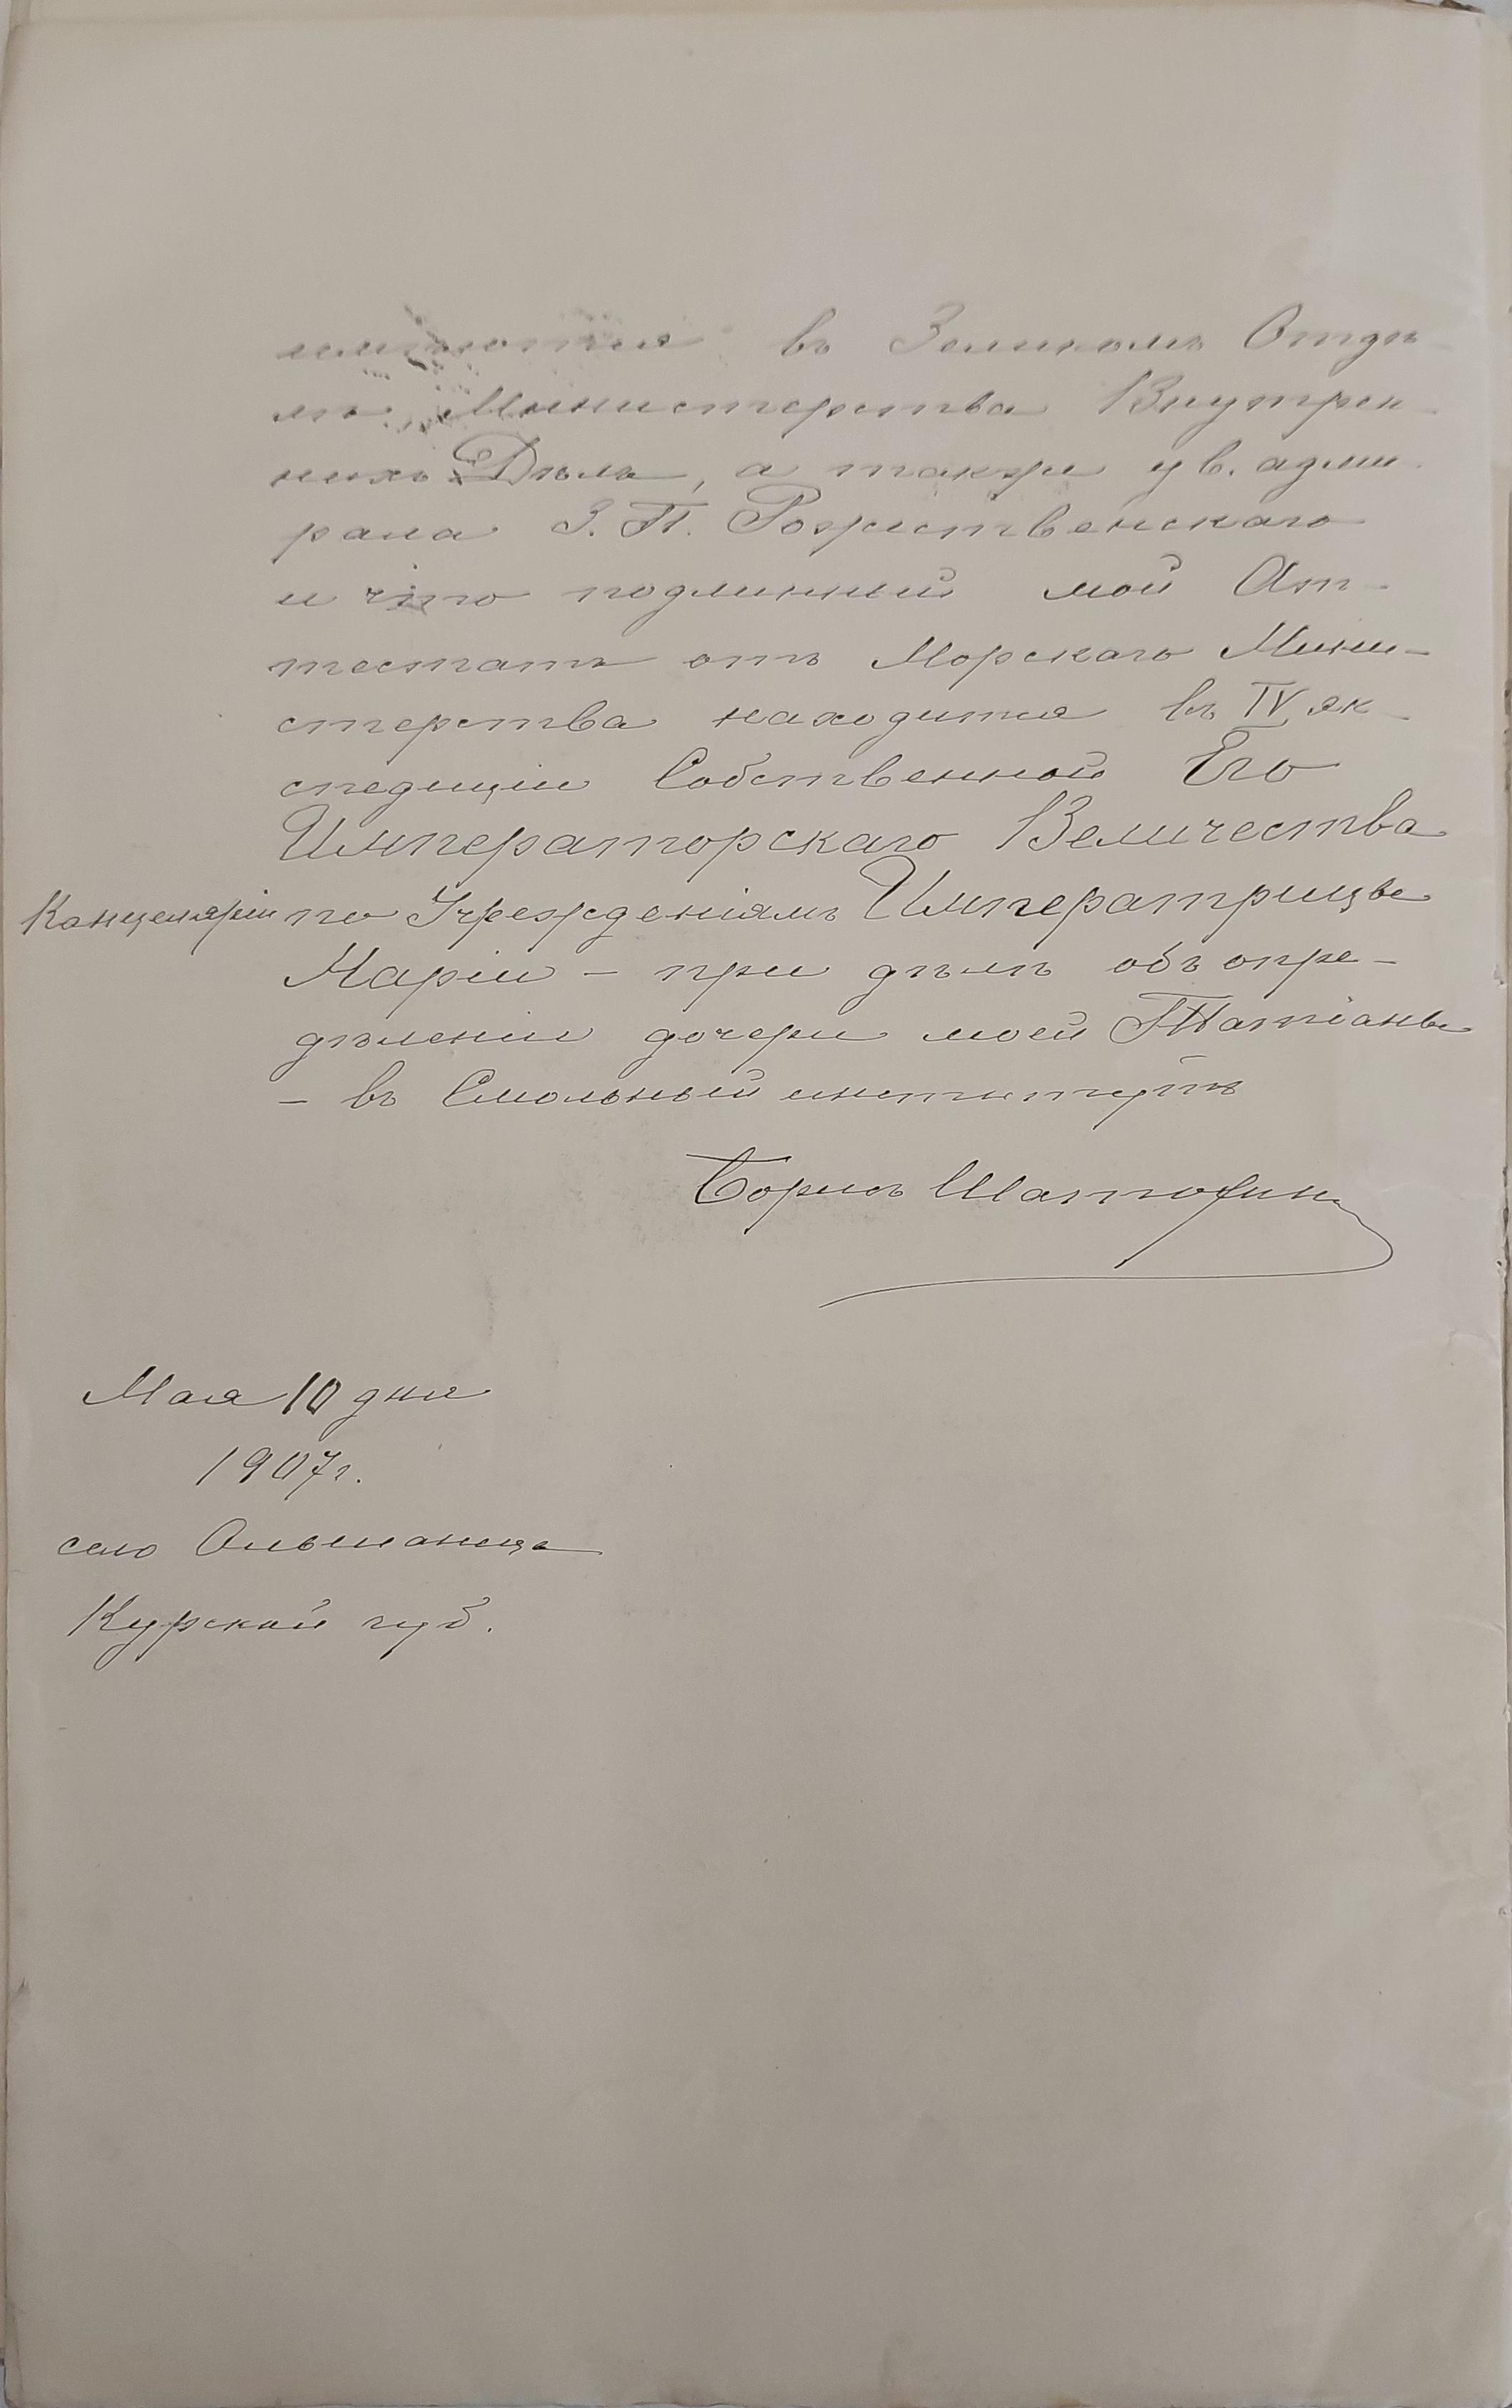 имѣются въ Земскомъ Отдѣ
лѣ Министерства Внутрен-
нихъ Дѣлъ, а также у в. адми-
рала З. П. Рожественскаго
и что подлинный мой Ат-
тестатъ отъ Морскаго Мини-
стерства находится въ IV эк-
спедиціи Собственной Его
Императорскаго Величества
Канцеляріи по Учрежденіямъ Императрицы
Маріи – при дѣлѣ объ опре-
дѣленіи дочери моей Татіаны
– въ Смольный институтъ
Борисъ
Мая 10 дня
1907 г.
село Ольшанца
Курской губ.